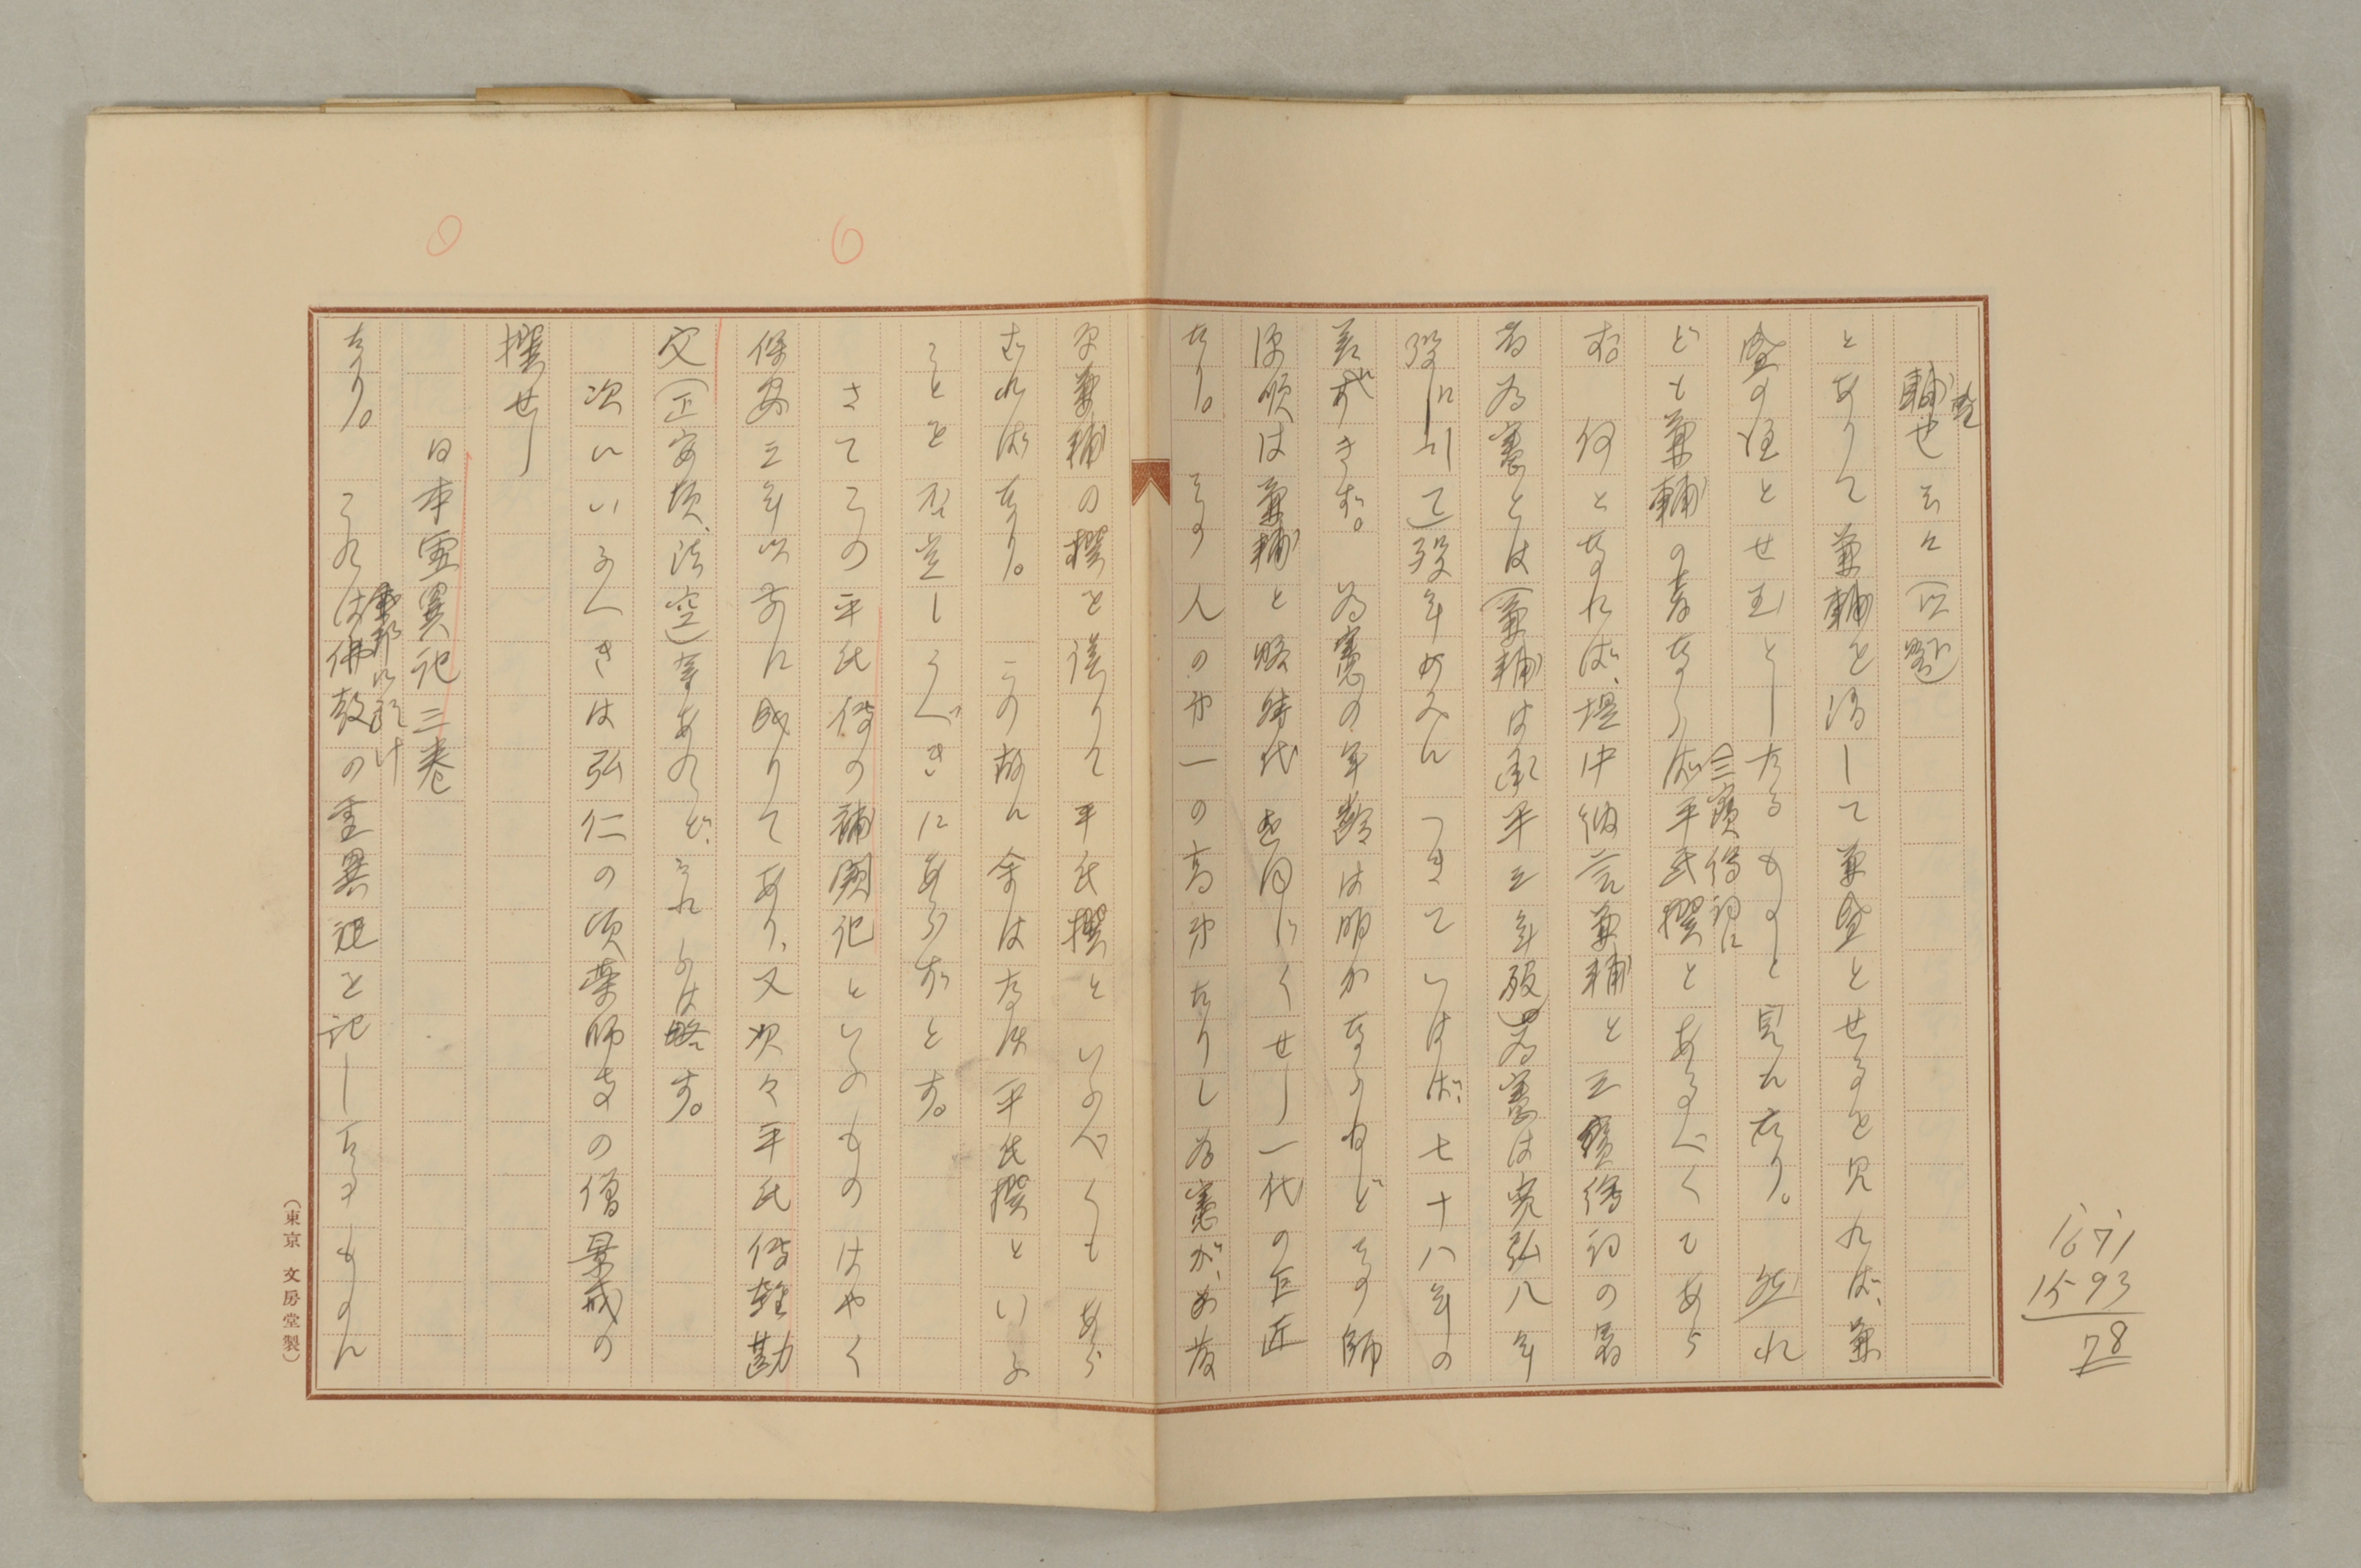 輔也云々(以上略)
盛
とありて兼輔を消して兼盛とせるを見れば、兼
盛の注とせむとしたるものと見えたり。然れ
ども兼輔の書ならば平氏撰とあるべくもあら
三宝絵詞に
ず。何となれば、堤中納言兼輔と三宝絵詞の著
者為憲とは(兼輔は承平三年歿也為憲は寛弘八年
歿に引て)歿年のみにつきていはば、七十八年の
差ありき。為憲の年齢は明かならねどその師
源順は兼輔と略時代を同じくせし一代の巨匠
なり。その人の第一の高弟たりし為憲が、
兼輔の撰を誤りて平氏撰といふべくもあら
ざればなり。この故に余は平氏撰といふ
ことを否定しうべきにあらずとす。
さてこの平氏伝の補闕記といふものはやく
保安三年以前に成りてあり、又次々平氏伝雑勘
文(正安頃、法空)等あれど、それらは略す。
次にいふべきは弘仁の頃薬師寺の僧景戒の
撰せし
日本霊異記 三巻
なり。これは佛教の霊異記を記したるものに
本邦に於け
(東京 文房堂製)
1671
1593
78